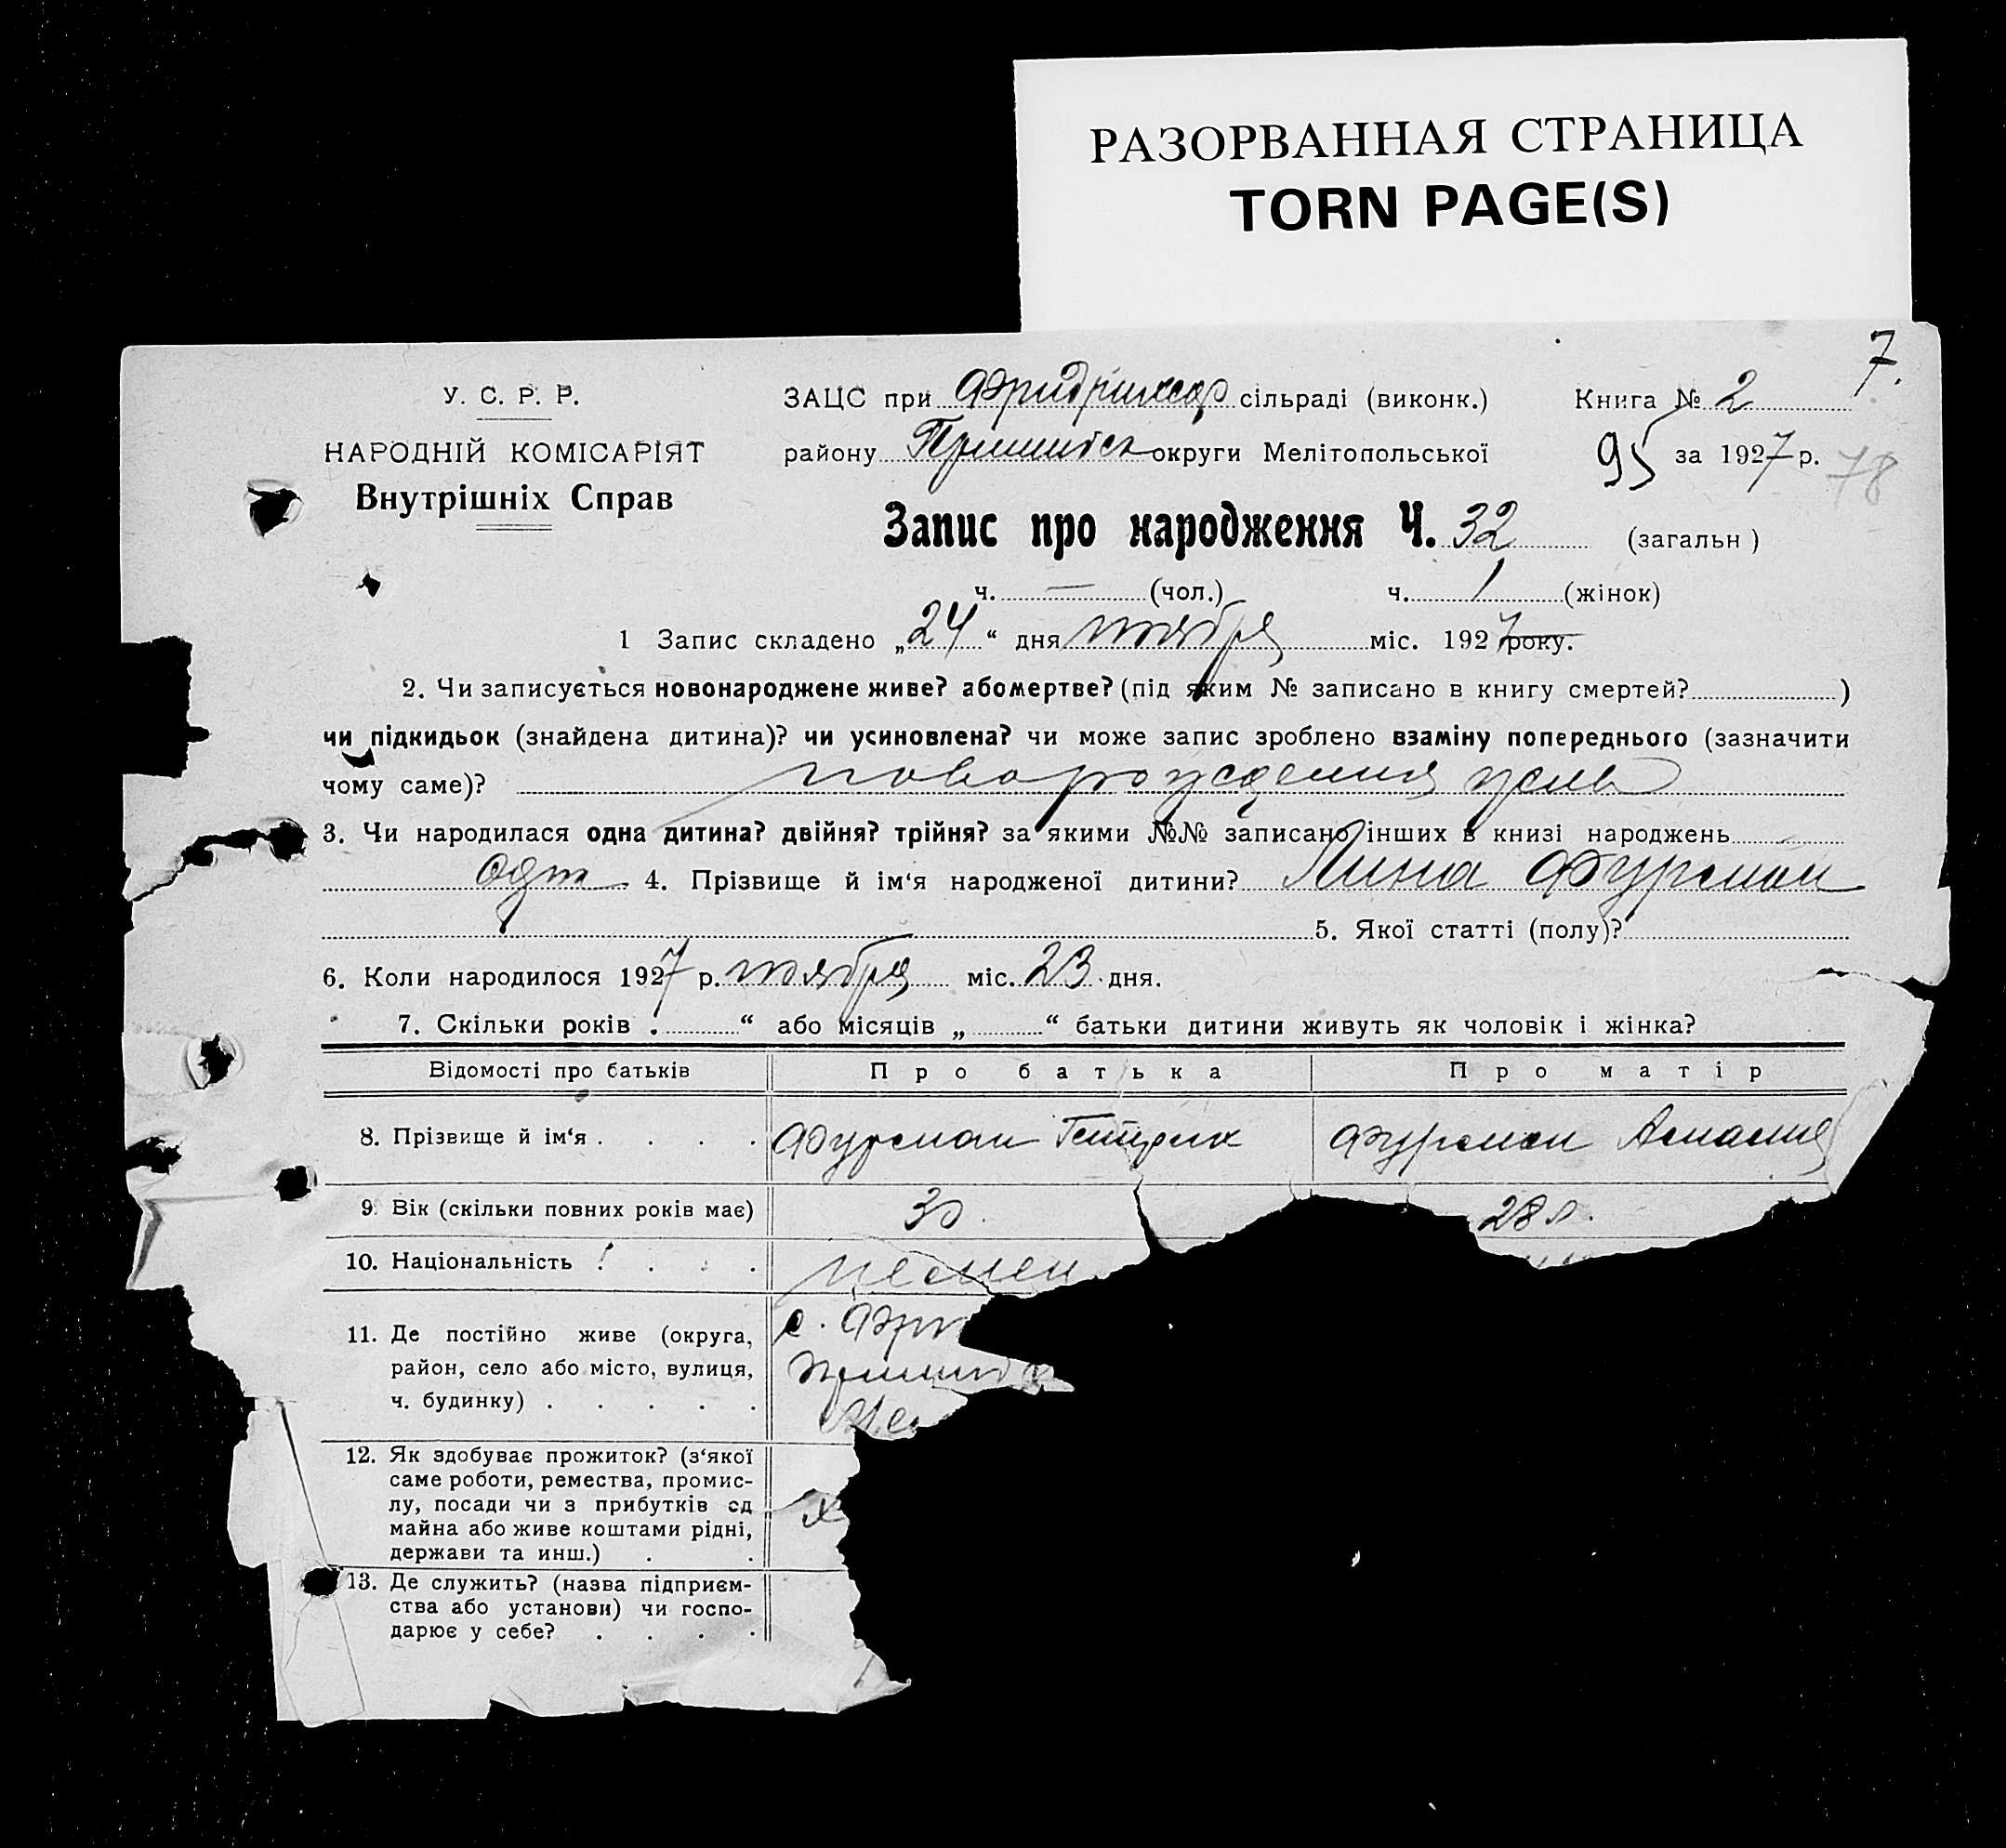 РАЗОРВАННАЯ СТРАНИЦА
TORN PAGE(S)
7.
У. С. Р. Р.
НАРОДНІЙ КОМІСАРІЯТ
Внутрішніх Справ
ЗАЦС при сільраді (виконк.) Книга № 2
району Пришибск округи Мелітопольської 95 за 1927 р. 78
Запис про народження Ч. 32 (загальн)
ч. — (чол.) ч. 1 (жінок)
1 Запис складено „24“ дня ноября міс. 1927 року.
2. Чи записується новонароджене живе? або мертве? (під яким № записано в книгу смертей? )
чи підкидьок (знайдена дитина)? чи усиновлена? чи може запис зроблено взаміну попереднього (зазначити
чому саме)? новорожденная
3. Чи народилася одна дитина? двійня? трійня? за якими №№ записано інших в книзі народжень
одна 4. Прізвище й ім‘я народженої дитини? Лина Фурман
5. Якої статті (полу)?
6. Коли народилося 1927 р. ноября міс. 23 дня.
7. Скільки років „ “ або місяців „ “ батьки дитини живуть як чоловік і жінка?
Відомості про батьків Про батька Про матір
8. Прізвище й ім‘я . . . . Фурман Гейнрих Фурман
9. Вік (скільки повних років має) 30. 28 л.
10. Національність . . . . немец
11. Де постійно живе (округа, с. Фри
район, село або місто, вулиця, Пришиб
ч. будинку) . . . . . Ме
12. Як здобуває прожиток? (з‘якої
саме роботи, ремества, промис-
лу, посади чи з прибутків од х
майна або живе коштами рідні,
держави та инш.) . .
13. Де служить? (назва підприєм-
ства або установи) чи госпо-
дарює у себе? . . . .